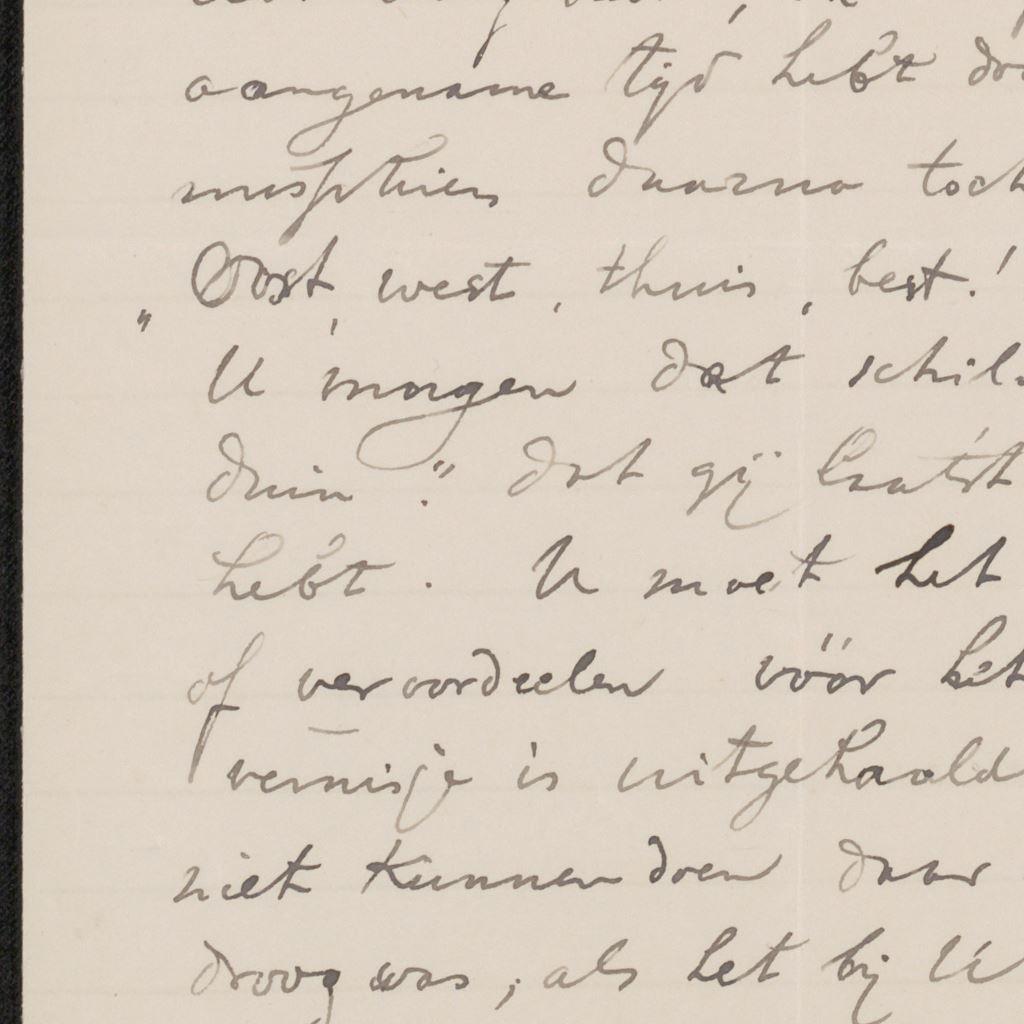 aangename tijd hebt
misschien daarna toch
Oost, west, thuis, best!
U morgen dat
duin". dat gij laatst
hebt. U moet het
of veroordeelen vóór het
vernisje is uitgehaald
niet kunnen doen daar
droog was, als het bij U